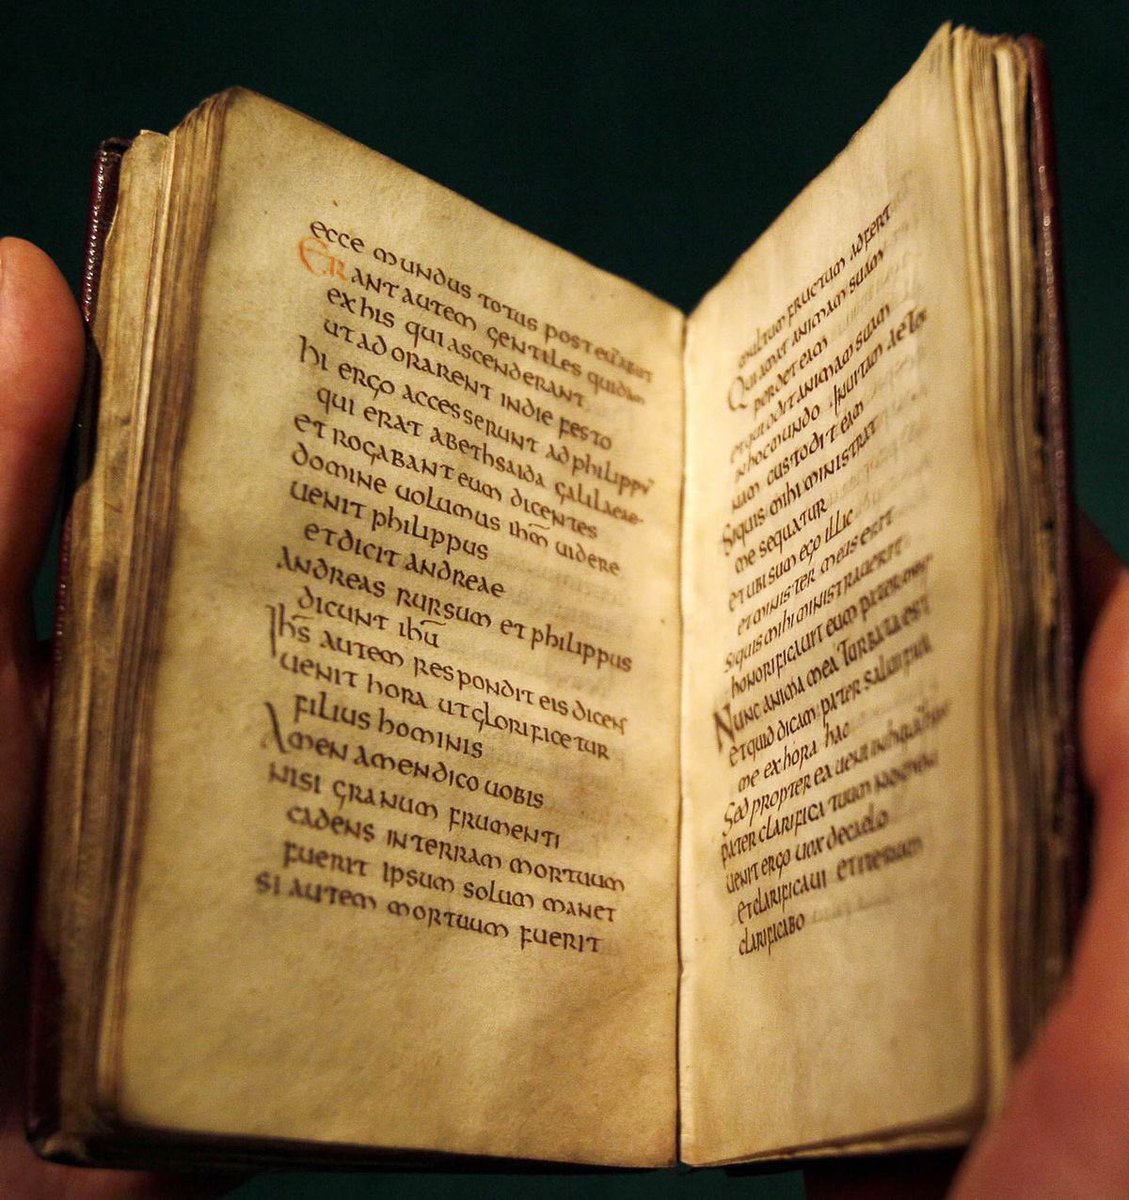 ecce mundus totus post eū abiit
Erant autem gentiles quidam
ex his qui ascenderant
ut adorarent in die festo
hi ergo accesserunt ad philippū
qui erat a bethsaida galilaeae·
et rogabant eum dicentes
domine uolumus ih̄m uidere
uenit philippus
et dicit andreae
Andreas rursum et philippus
dicunt ihū
Ih̄s autem respondit eis dicens
uenit hora ut glorificetur
filius hominis
Amen amen dico uobis
nisi granum frumenti
cadens in terram mortuum
fuerit ipsum solum manet
si autem mortuum fuerit
multum fructum adferet
Qui amat animam suam
perdet eam
et qui odit animam suam
in hoc mundo · In uitam aeter
nam custodit eam
Siquis mihi ministrat
me sequatur
et ubi sum ego illic
et minister meus erit
siquis mihi ministrauerit
honorificauit eum pater
Nunc anima mea turbata est
et quid dicam pater
me ex hora hac
Sed propterea ueni in
pater clarifica tuum nomen
uenit ergo uox de caelo
et clarificaui et iterum
clarificabo